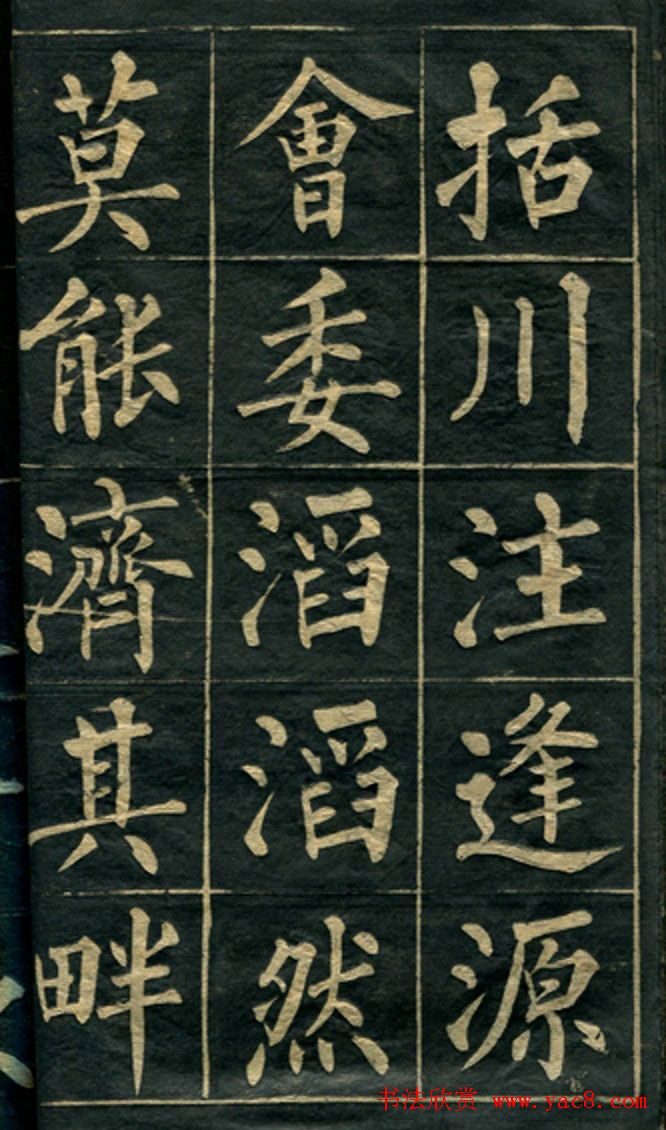 括川注逢源
會委滔滔然
莫能濟其畔
书法欣赏 www.yac8.com